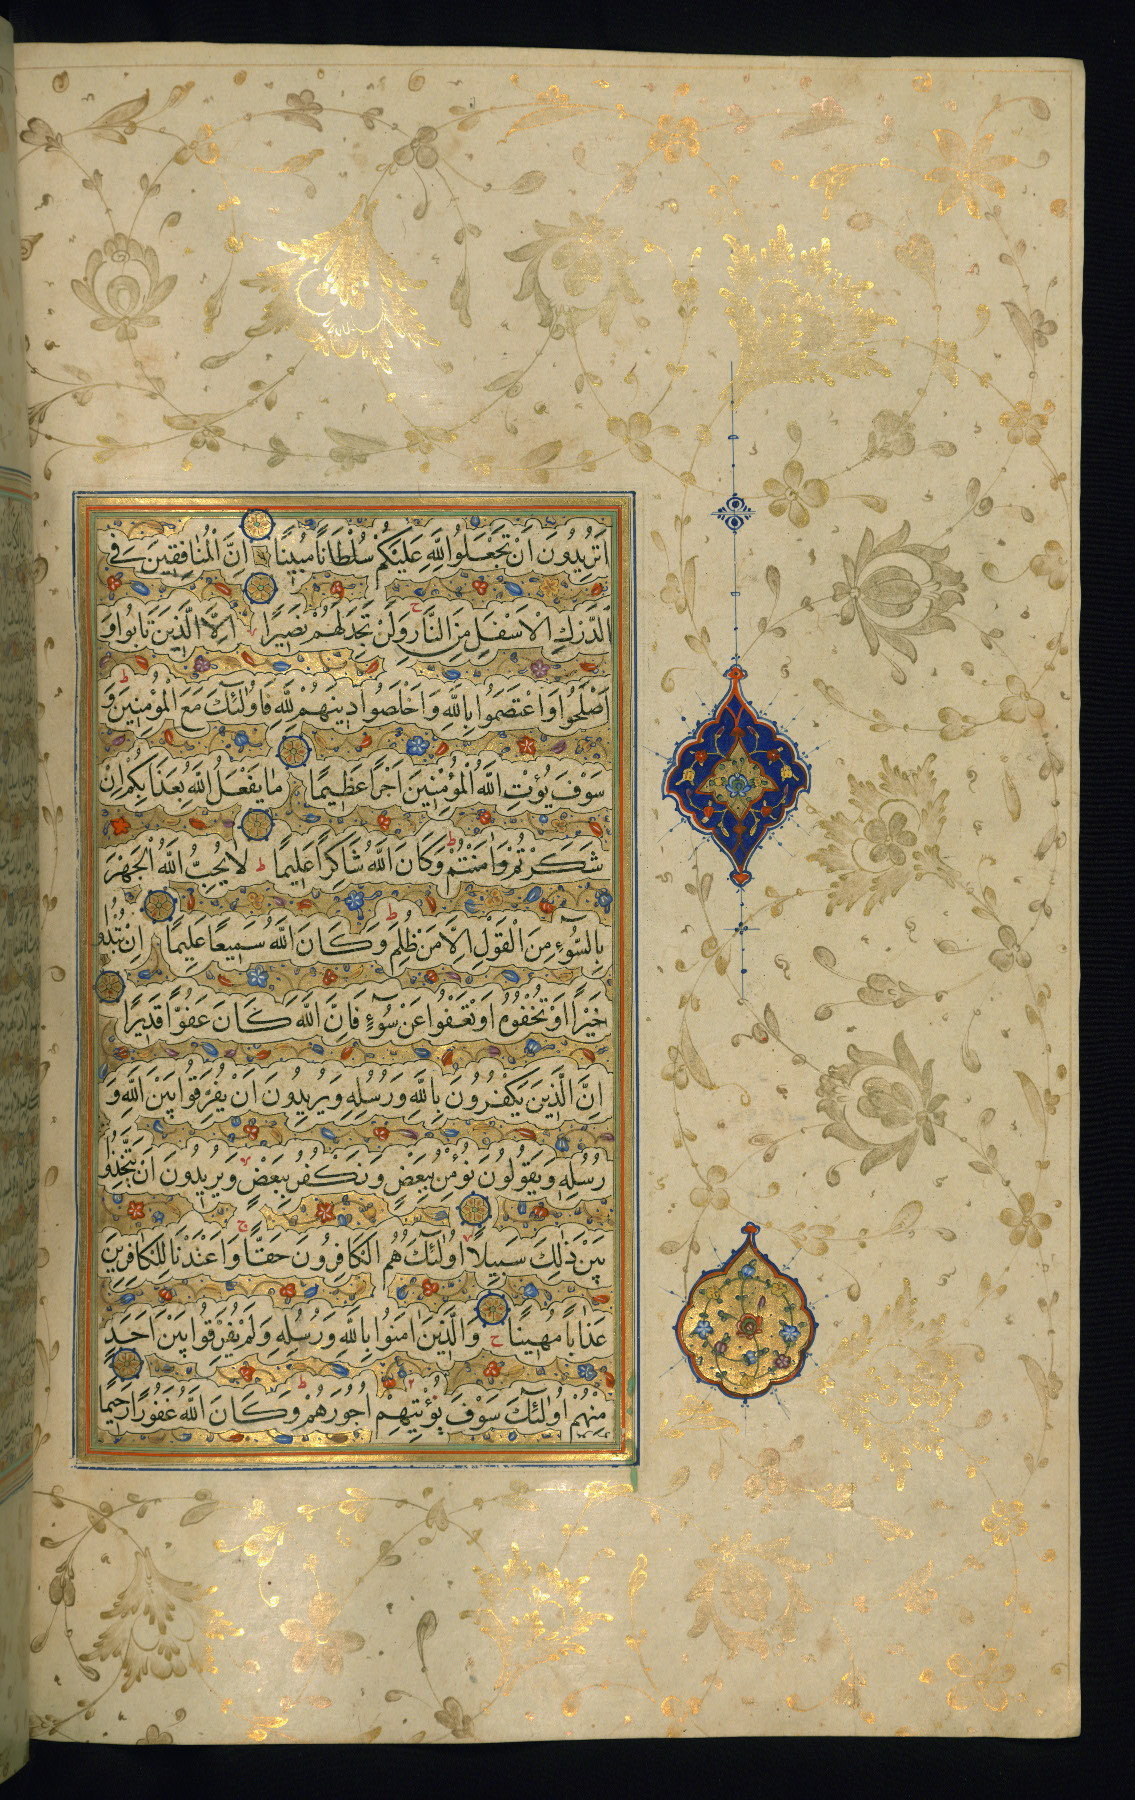 اَتُرِيدُونَ اَنْ تَجْعَلُوا لِلّٰهِ عَلَيْكُمْ سُلْطَانًا مُبِينًا اِنَّ الْمُنَافِقِينَ فِي
الدَّرْكِ الْاَسْفَلِ مِنَ النَّارِ ج وَلَنْ تَجِدَ لَهُمْ نَصِيرًا لا اِلَّا الَّذِينَ تَابُوا وَ
اَصْلَحُوا وَاعْتَصَمُوا بِاللّٰهِ وَاَخْلَصُوا دِينَهُمْ لِلّٰهِ فَاُولٰئِكَ مَعَ الْمُؤْمِنِينَ ط وَ
سَوْفَ يُؤْتِ اللّٰهُ الْمُؤْمِنِينَ اَجْرًا عَظِيمًا مَا يَفْعَلُ اللّٰهُ بِعَذَابِكُمْ اِنْ
شَكَرْتُمْ وَاٰمَنْتُمْ ط وَكَانَ اللّٰهُ شَاكِرًا عَلِيمًا ط لَا يُحِبُّ اللّٰهُ الْجَهْرَ
بِالسُّوٓءِ مِنَ الْقَوْلِ اِلَّا مَنْ ظُلِمَ ط وَكَانَ اللّٰهُ سَمِيعًا عَلِيمًا اِنْ تُبْدُوا
خَيْرًا اَوْ تُخْفُوهُ اَوْ تَعْفُوا عَنْ سُوٓءٍ فَاِنَّ اللّٰهَ كَانَ عَفُوًّا قَدِيرًا
اِنَّ الَّذِينَ يَكْفُرُونَ بِاللّٰهِ وَرُسُلِهِ وَيُرِيدُونَ اَنْ يُفَرِّقُوا بَيْنَ اللّٰهِ وَ
رُسُلِهِ وَيَقُولُونَ نُؤْمِنُ بِبَعْضٍ وَنَكْفُرُ بِبَعْضٍ لا وَيُرِيدُونَ اَنْ يَتَّخِذُوا
بَيْنَ ذٰلِكَ سَبِيلًا لا اُولٰٓئِكَ هُمُ الْكَافِرُونَ حَقًّا ج وَاَعْتَدْنَا لِلْكَافِرِينَ
عَذَابًا مُهِينًا ج وَالَّذِينَ اٰمَنُوا بِاللّٰهِ وَرُسُلِهِ وَلَمْ يُفَرِّقُوا بَيْنَ اَحَدٍ
مِنْهُمْ اُولٰٓئِكَ سَوْفَ يُؤْتِيهِمْ اُجُورَهُمْ ط وَكَانَ اللّٰهُ غَفُورًا رَحِيمًا